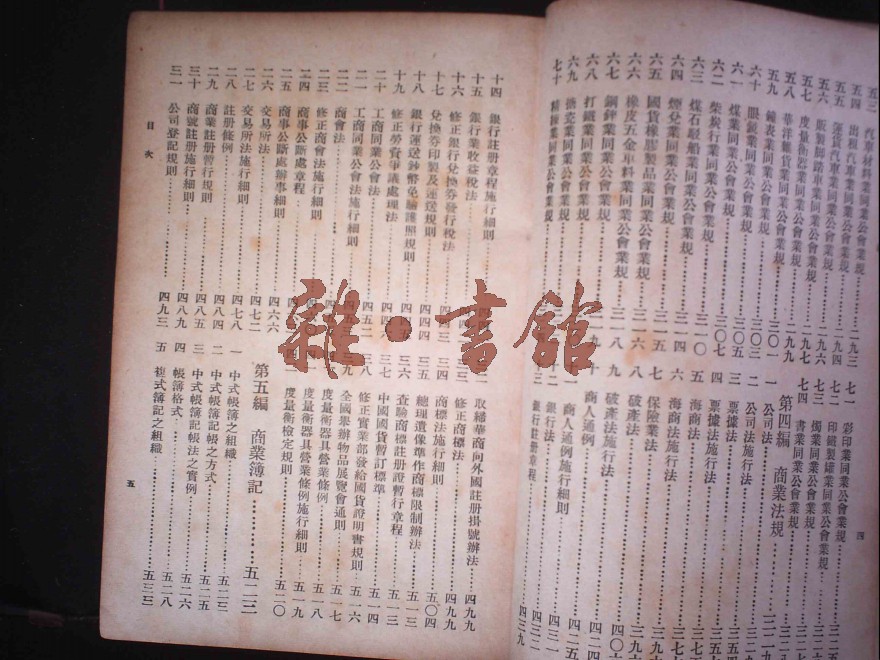 五三 汽車材料業業同業公會業規
五四 出租汽車業同業公會業規……二九三
五五 運貨汽車業同業公會業規……二九四
五六 販製脚踏車業同業公會業規……二九六
五七 度量衡器業同業公會業規……二九七
五八 華洋雜貨業同業公會業規……二九九
五九 鐘表業同業公會業規……三〇一
六十 眼鏡業同業公會業規……三〇三
六一 煤業同業公會業規……三〇五
六二 柴炭行業同業公會業規……三〇七
六三 煤石駁船業同業公會業規……三一〇
六四 煙兌業同業公會業規……三一四
六五 國貨橡膠製品業同業公會業規
六六 橡皮五金車料業同業公會業規……三一六
六七 鋼鋅業同業公會業規……三一八
六八 打鐵業同業公會業規
六九 搪瓷業同業公會業規
七十 業同業公會業規
七一 彩印業同業公會業規
七二 印鐵製罐業同業公會業規
七三 燭業同業公會業規
七四 書業同業公會業規
第四編 商業法規
一 公司法
二 公司法施行法
三 票據法
四 票據法施行法
五 海商法
六 海商法施行法
七 保險業法
八 破產法
九 破產法施行法
十 商人通例……四二四
商人通例施行細則……四二五
銀行法……四三一
銀行註冊章程……四三九
四
十四 銀行註冊章程施行細則
十五 銀行業收益稅法
十六 修正銀行兌換券發行稅法
十七 兌換券印製及運送規則……四四三
十八 銀行運送鈔幣免驗護照規則……四四四
十九 修正勞資爭議處理法
二十 工商同業公會法
二一 工商同業公會法施行細則
二二 商會法
二三 修正商會法施行細則
二四 商事公斷處章程
二五 商事公斷處辦事細則
二六 交易所法……四六六
二七 交易所法施行細則……四七二
二八 註冊條例……四七八
二九 商業註冊暫行規則……四八四
三十 商號註冊施行細則……四八九
三一 公司登記規則……四九三
目次
三二 取締華商向外國註冊掛號辦法……四九九
三三 修正商標法……四九九
三四 商標法施行細則……五〇四
三五 總理遺像準作商標限制辦法……五一三
三六 查驗商標註冊證暫行章程……五一三
三七 中國國貨暫訂標準……五一四
三八 修正實業部發給國貨證明書規則……五一六
三九 全國舉辦物品展覽會通則……五一七
度量衡器具營業條例……五一八
度量衡器具營業條例施行細則……五一九
度量衡檢定規則……五二〇
第五編 商業簿記……五二三
一 中式帳簿之組織……五二三
二 中式帳簿記帳之方式……五二五
三 中式帳簿記帳法之實例……五二六
四 帳簿格式……五二八
五 複式簿記之組織……五三三
五
雜·書館